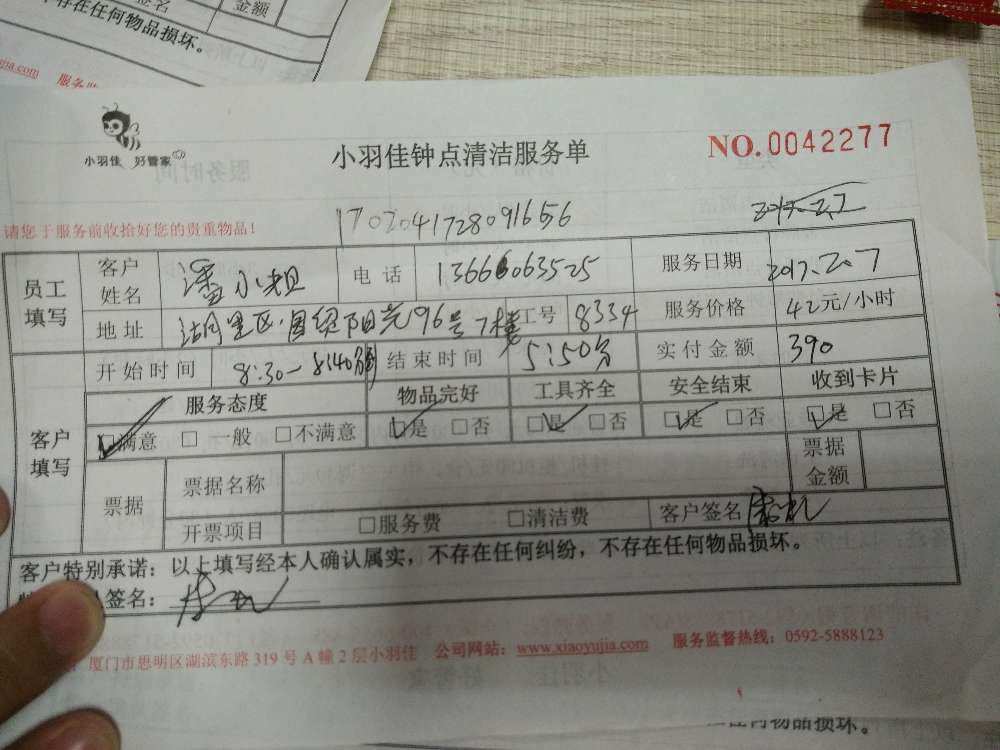 签名
金额
存在任何物品损坏。
jia.com 服务监
小羽佳 好管家
小羽佳钟点清洁服务单
NO.0042277
请您于服务前收拾好您的贵重物品!
17020417280916556
2017.2.7
员工填写 客户姓名 潘小姐 电话 13666063525 服务日期 2017.2.7
地址 湖里区·国绿阳光96号7楼 工号 8334 服务价格 42元/小时
客户填写 开始时间 8:30-8:40分到 结束时间 5:50分 实付金额 390
服务态度 物品完好 工具齐全 安全结束 收到卡片
☑满意 □一般 □不满意 ☑是 □否 ☑是 □否 ☑是 □否 ☑是 □否
票据 票据名称 票据金额
开票项目 □服务费 □清洁费 客户签名
客户特别承诺:以上填写经本人确认属实,不存在任何纠纷,不存在任何物品损坏。
签名:
厦门市思明区湖滨东路 319 号 A 幢 2 层小羽佳 公司网站:www.xiaoyujia.com 服务监督热线:0592-5888123
任何物品损坏。